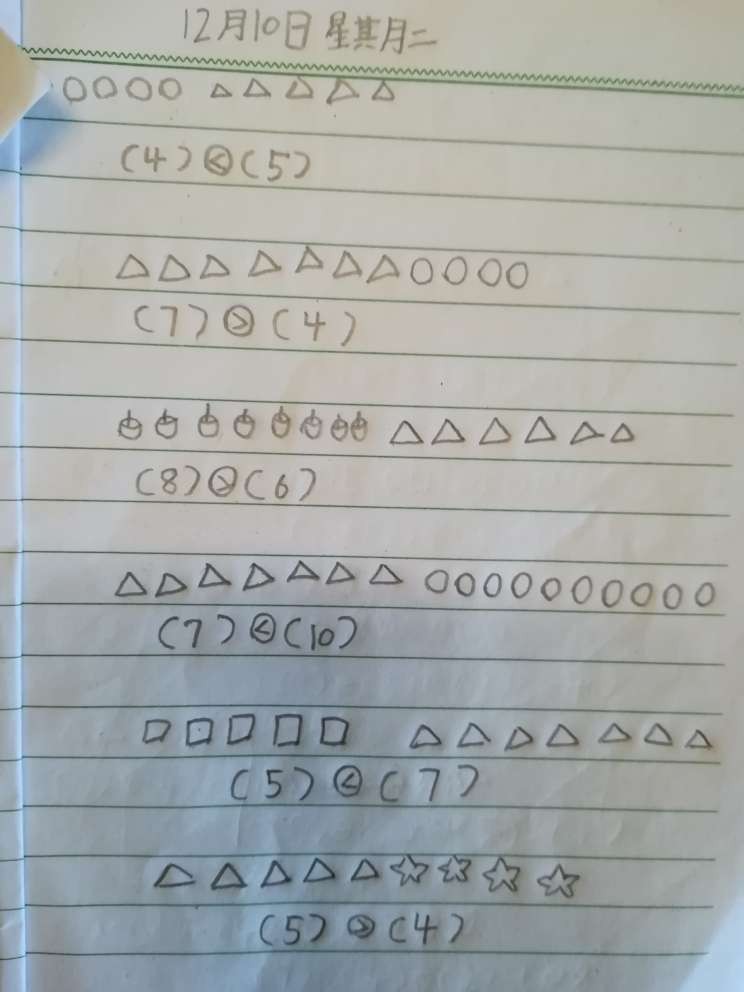 12月10日 星其月二
○○○○ △△△△△
(4)<(5)
△△△△△△△○○○○
(7)>(4)
(8)>(6)
△△△△△△△ ○○○○○○○○○○
(7)<(10)
□□□□□ △△△△△△△
(5)<(7)
△△△△△☆☆☆☆
(5)>(4)